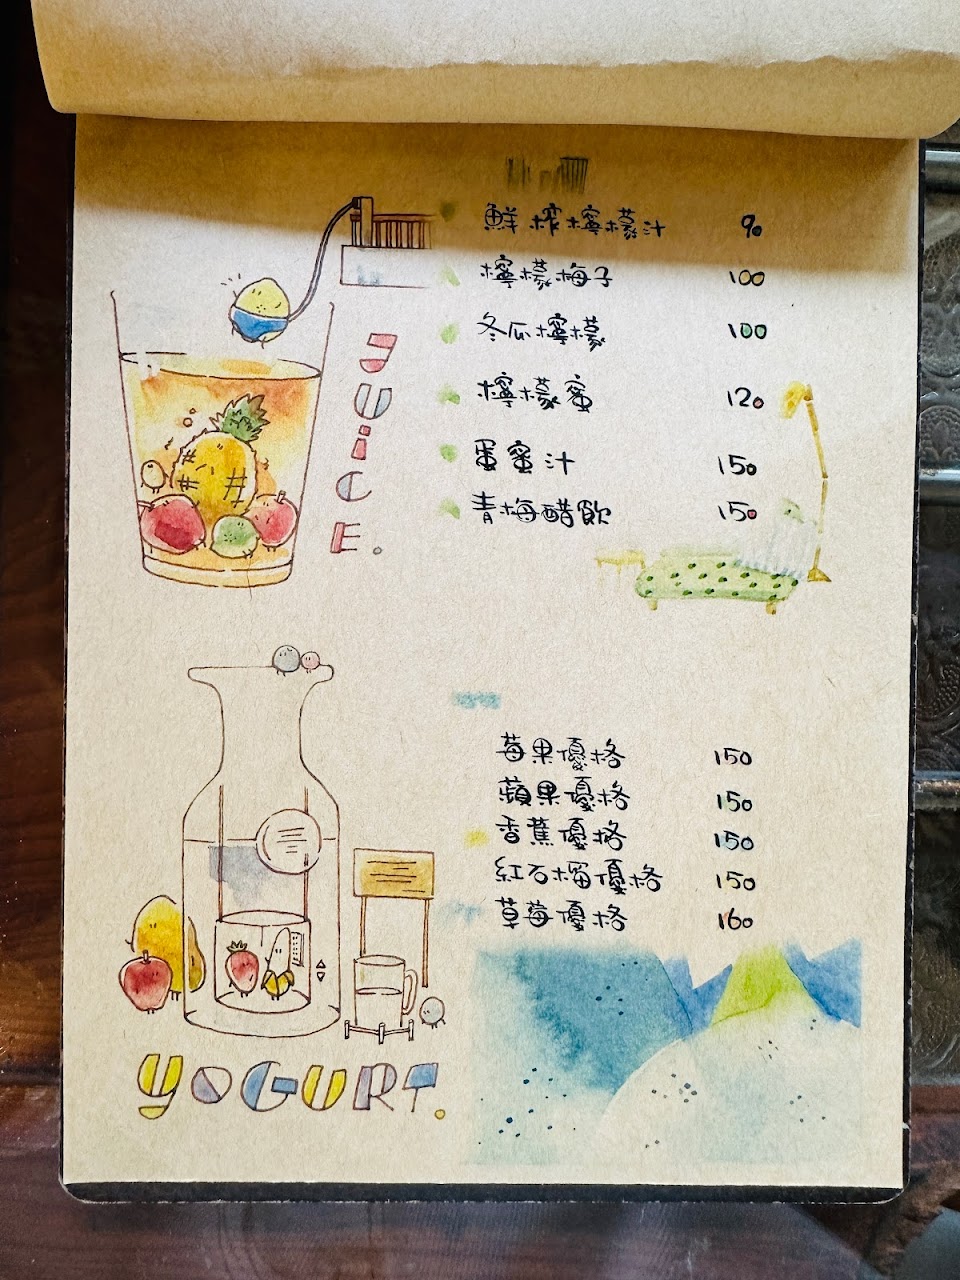 JUICE.
鮮榨檸檬汁 90
檸檬梅子 100
冬瓜檸檬 100
檸檬蜜 120
蛋蜜汁 150
青梅醋飲 150
YOGURT.
莓果優格 150
蘋果優格 150
香蕉優格 150
紅石榴優格 150
草莓優格 160